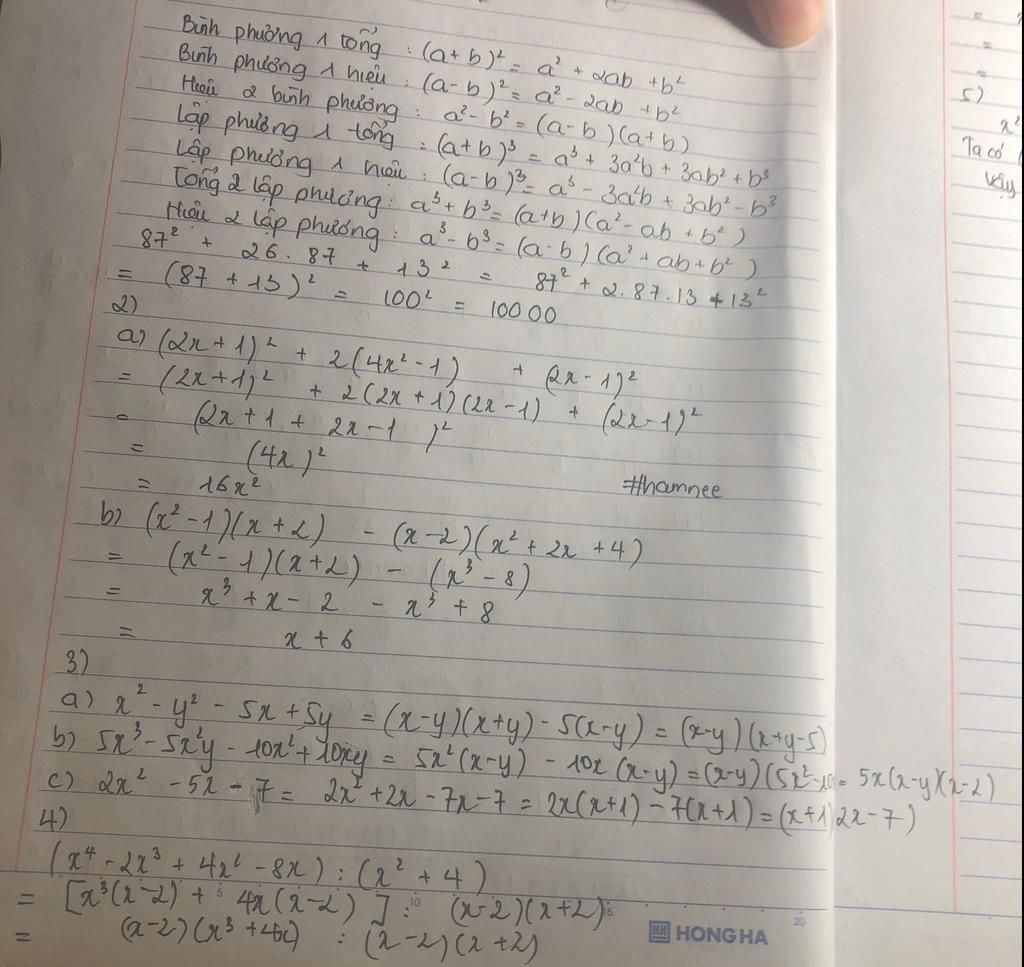 Bình phương 1 tổng : (a+b)² = a² + 2ab + b²
Bình phương 1 hiệu : (a-b)² = a² - 2ab + b²
Hiệu 2 bình phương : a² - b² = (a-b)(a+b)
Lập phương 1 tổng : (a+b)³ = a³ + 3a²b + 3ab² + b³
Lập phương 1 hiệu : (a-b)³ = a³ - 3a²b + 3ab² - b³
Tổng 2 lập phương : a³ + b³ = (a+b)(a² - ab + b²)
Hiệu 2 lập phương : a³ - b³ = (a-b)(a² + ab + b²)
87² + 26.87 + 13² = 87² + 2.87.13 + 13²
= (87 + 13)² = 100² = 10000
2)
a) (2x+1)² + 2(4x²-1) + (2x-1)²
= (2x+1)² + 2(2x+1)(2x-1) + (2x-1)²
= (2x+1 + 2x-1)²
= (4x)²
= 16x²
#hamnee
b) (x²-1)(x+2) - (x-2)(x²+2x+4)
= (x²-1)(x+2) - (x³-8)
= x³ + x - 2 - x³ + 8
= x + 6
3)
a) x² - y² - 5x + 5y = (x-y)(x+y) - 5(x-y) = (x-y)(x+y-5)
b) 5x³ - 5x²y - 10x² + 10xy = 5x²(x-y) - 10x(x-y) = (x-y)(5x²-10 = 5x(x-y)(x-2)
c) 2x² - 5x - 7 = 2x² + 2x - 7x - 7 = 2x(x+1) - 7(x+1) = (x+1 2x-7)
4)
(x⁴ - 2x³ + 4x² - 8x) : (x² + 4)
= [x³(x-2) + 4x(x-2)] : (x-2)(x+2)
= (x-2)(x³ + 4x) : (x-2)(x+2)
HONG HA
20
=
=
=
5)
x²
Ta có
Vậy